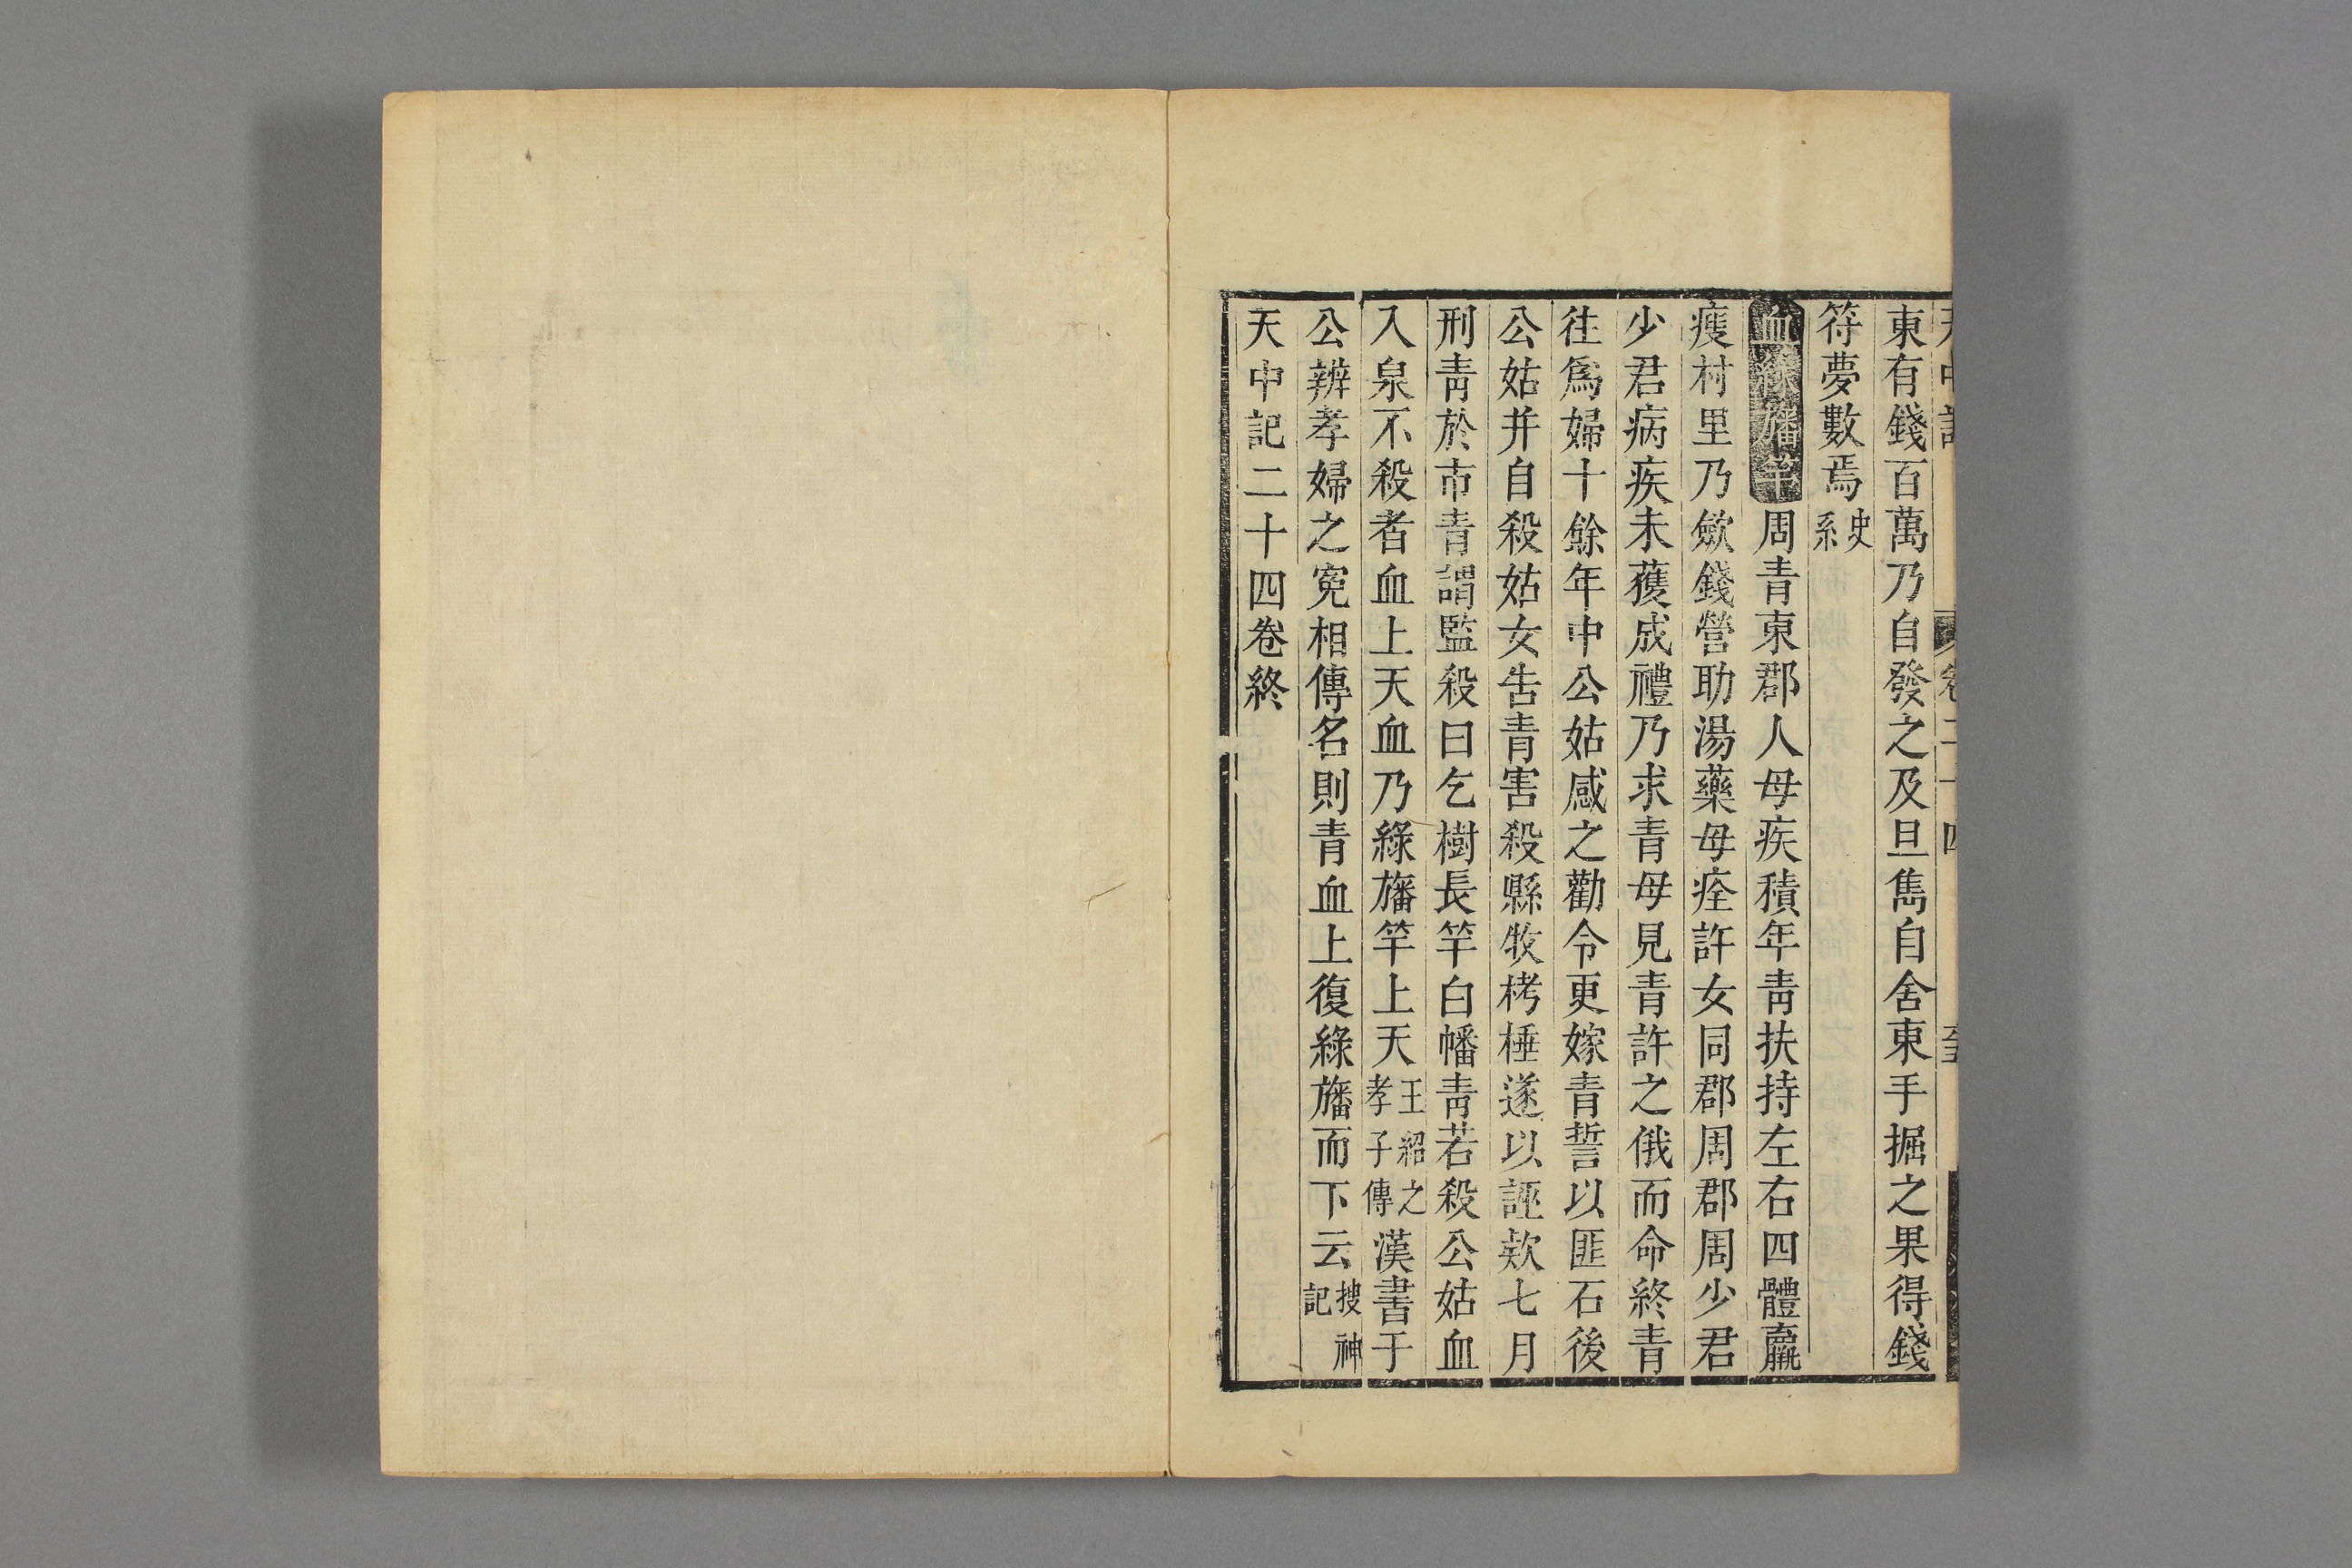 東有錢百萬乃自發之及旦雋自舍東手掘之果得錢
符夢數焉史系
血緣旛竿周青東郡人母疾積年青扶持左右四體羸
瘦村里乃歛錢營助湯藥母痊許女同郡周郡周少君
少君病疾未獲成禮乃求青母見青許之俄而命終青
徃爲婦十餘年中公姑感之勸令更嫁青誓以匪石後
公姑并自殺姑女告青害殺縣牧栲棰遂以誣欵七月
刑青於市青謂監殺曰乞樹長竿白幡青若殺公姑血
入泉不殺者血上天血乃緣旛竿上天王紹之孝子傳漢書于
公辨孝婦之寃相傳名則青血上復緣旛而下云搜神記
天中記二十四卷終